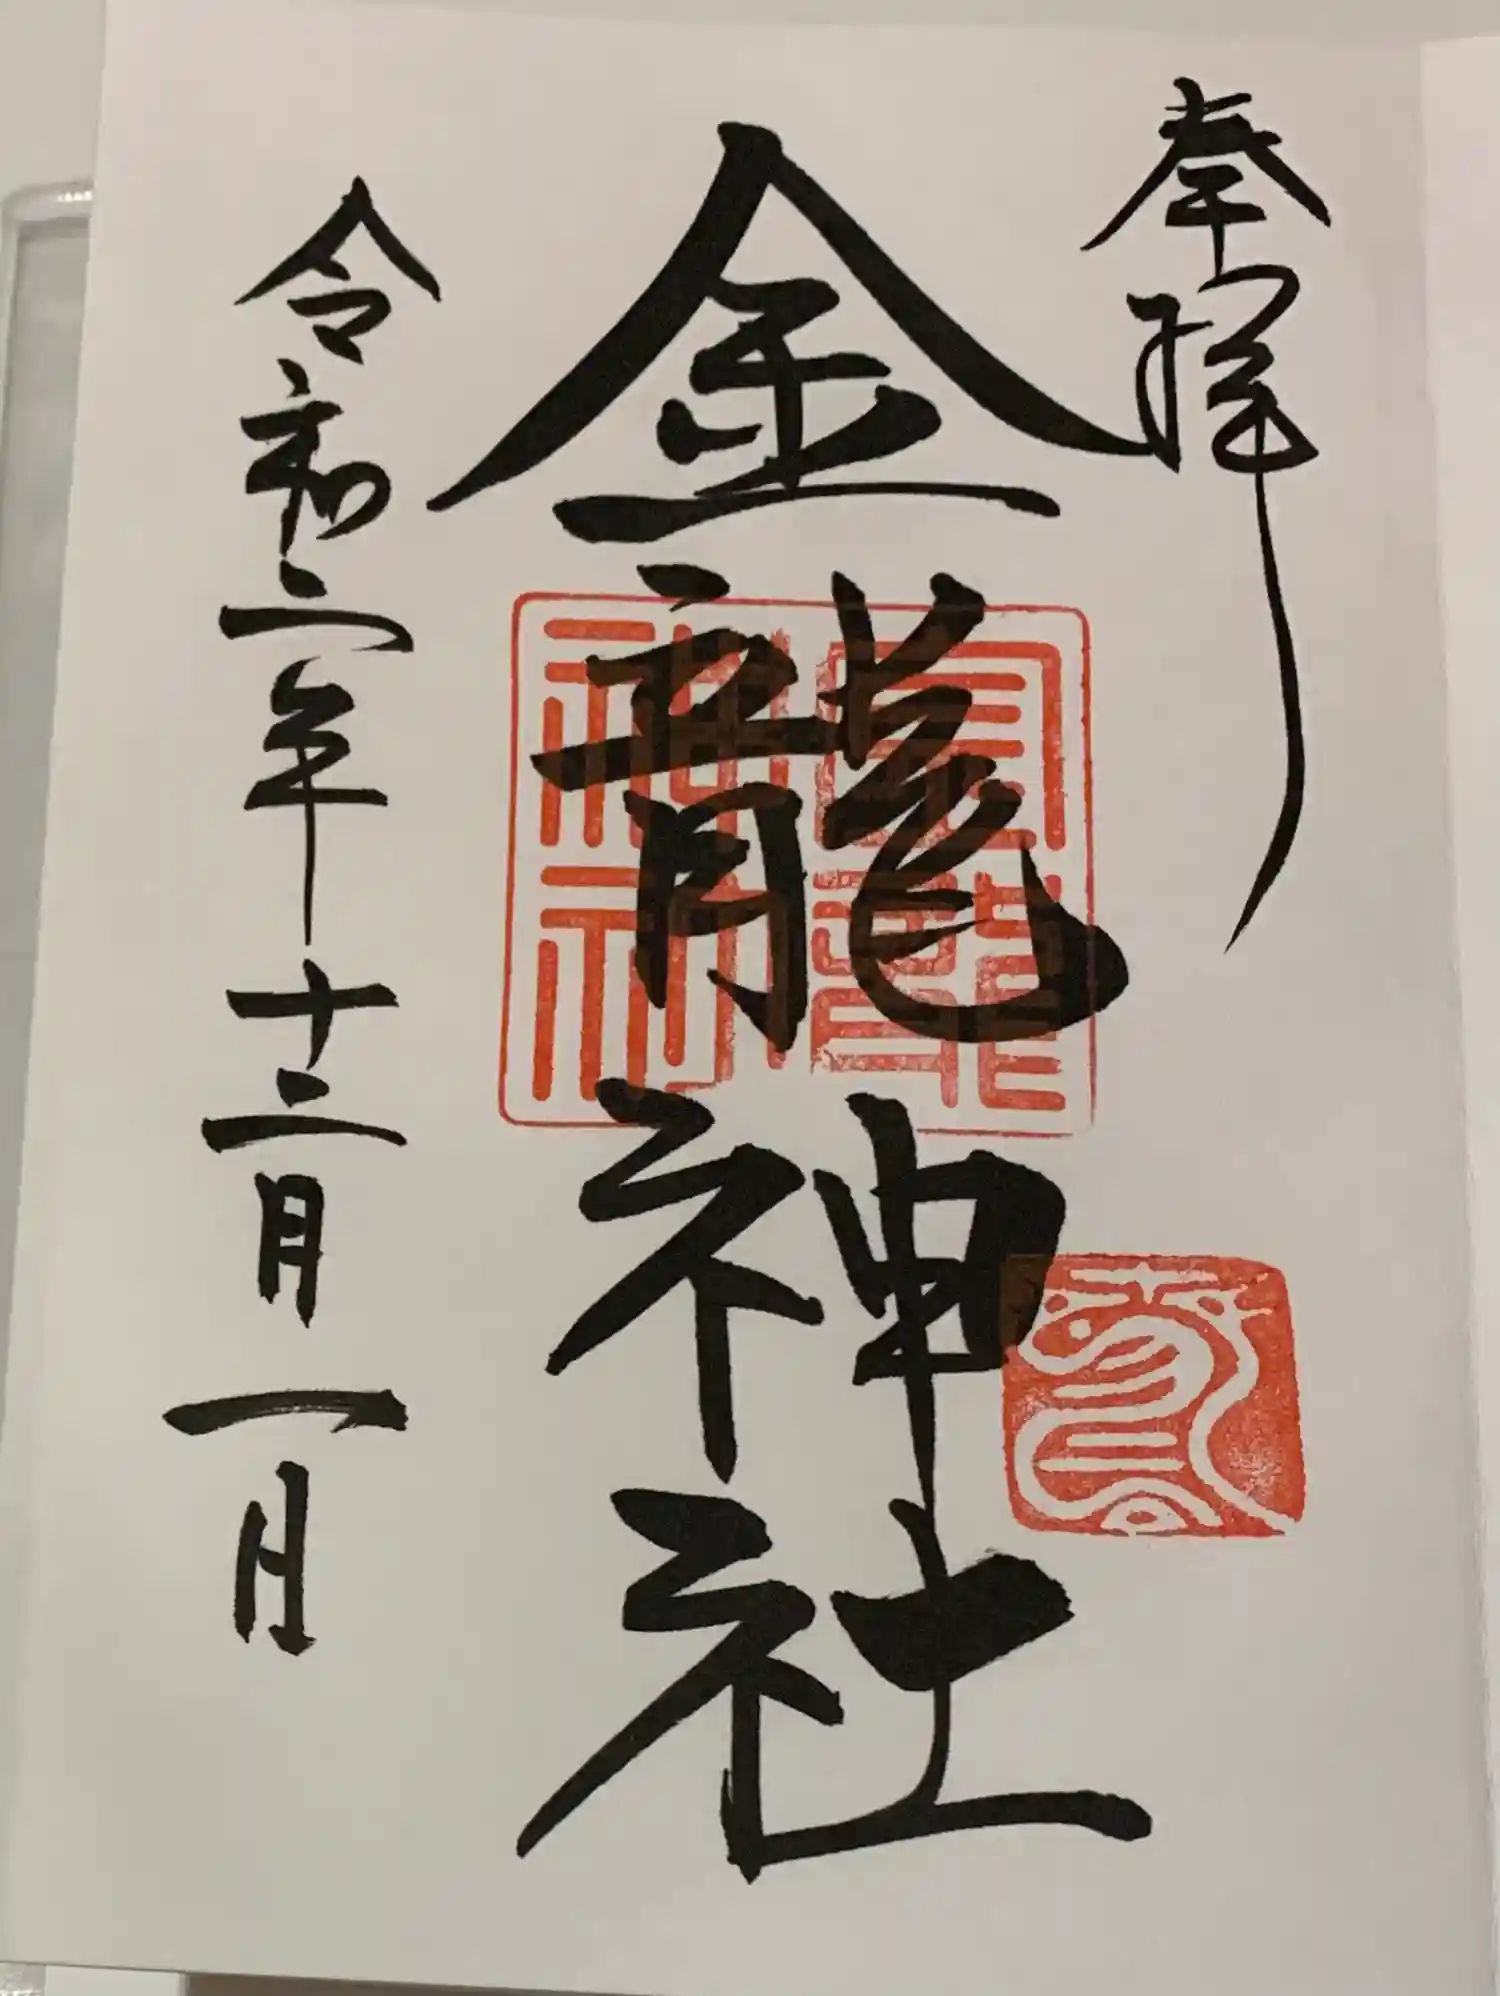 奉拝
金龍神社
金龍神社
令和二年十二月一日